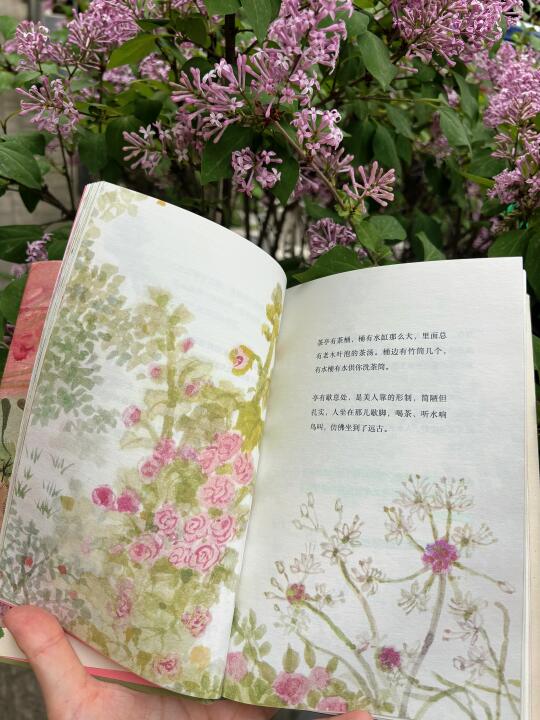 茶亭有茶桶，桶有水缸那么大，里面总
有老木叶泡的茶汤。桶边有竹筒几个，
有水桶有水供你洗茶筒。
亭有歇息处，是美人靠的形制，简陋但
扎实，人坐在那儿歇脚，喝茶、听水响
鸟叫，仿佛坐到了远古。